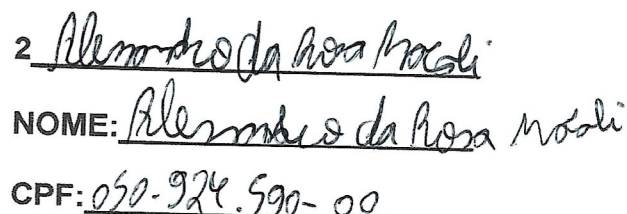 2 Alessandro da Rosa
NOME: Alessandro da Rosa
CPF: 050.924.590-00